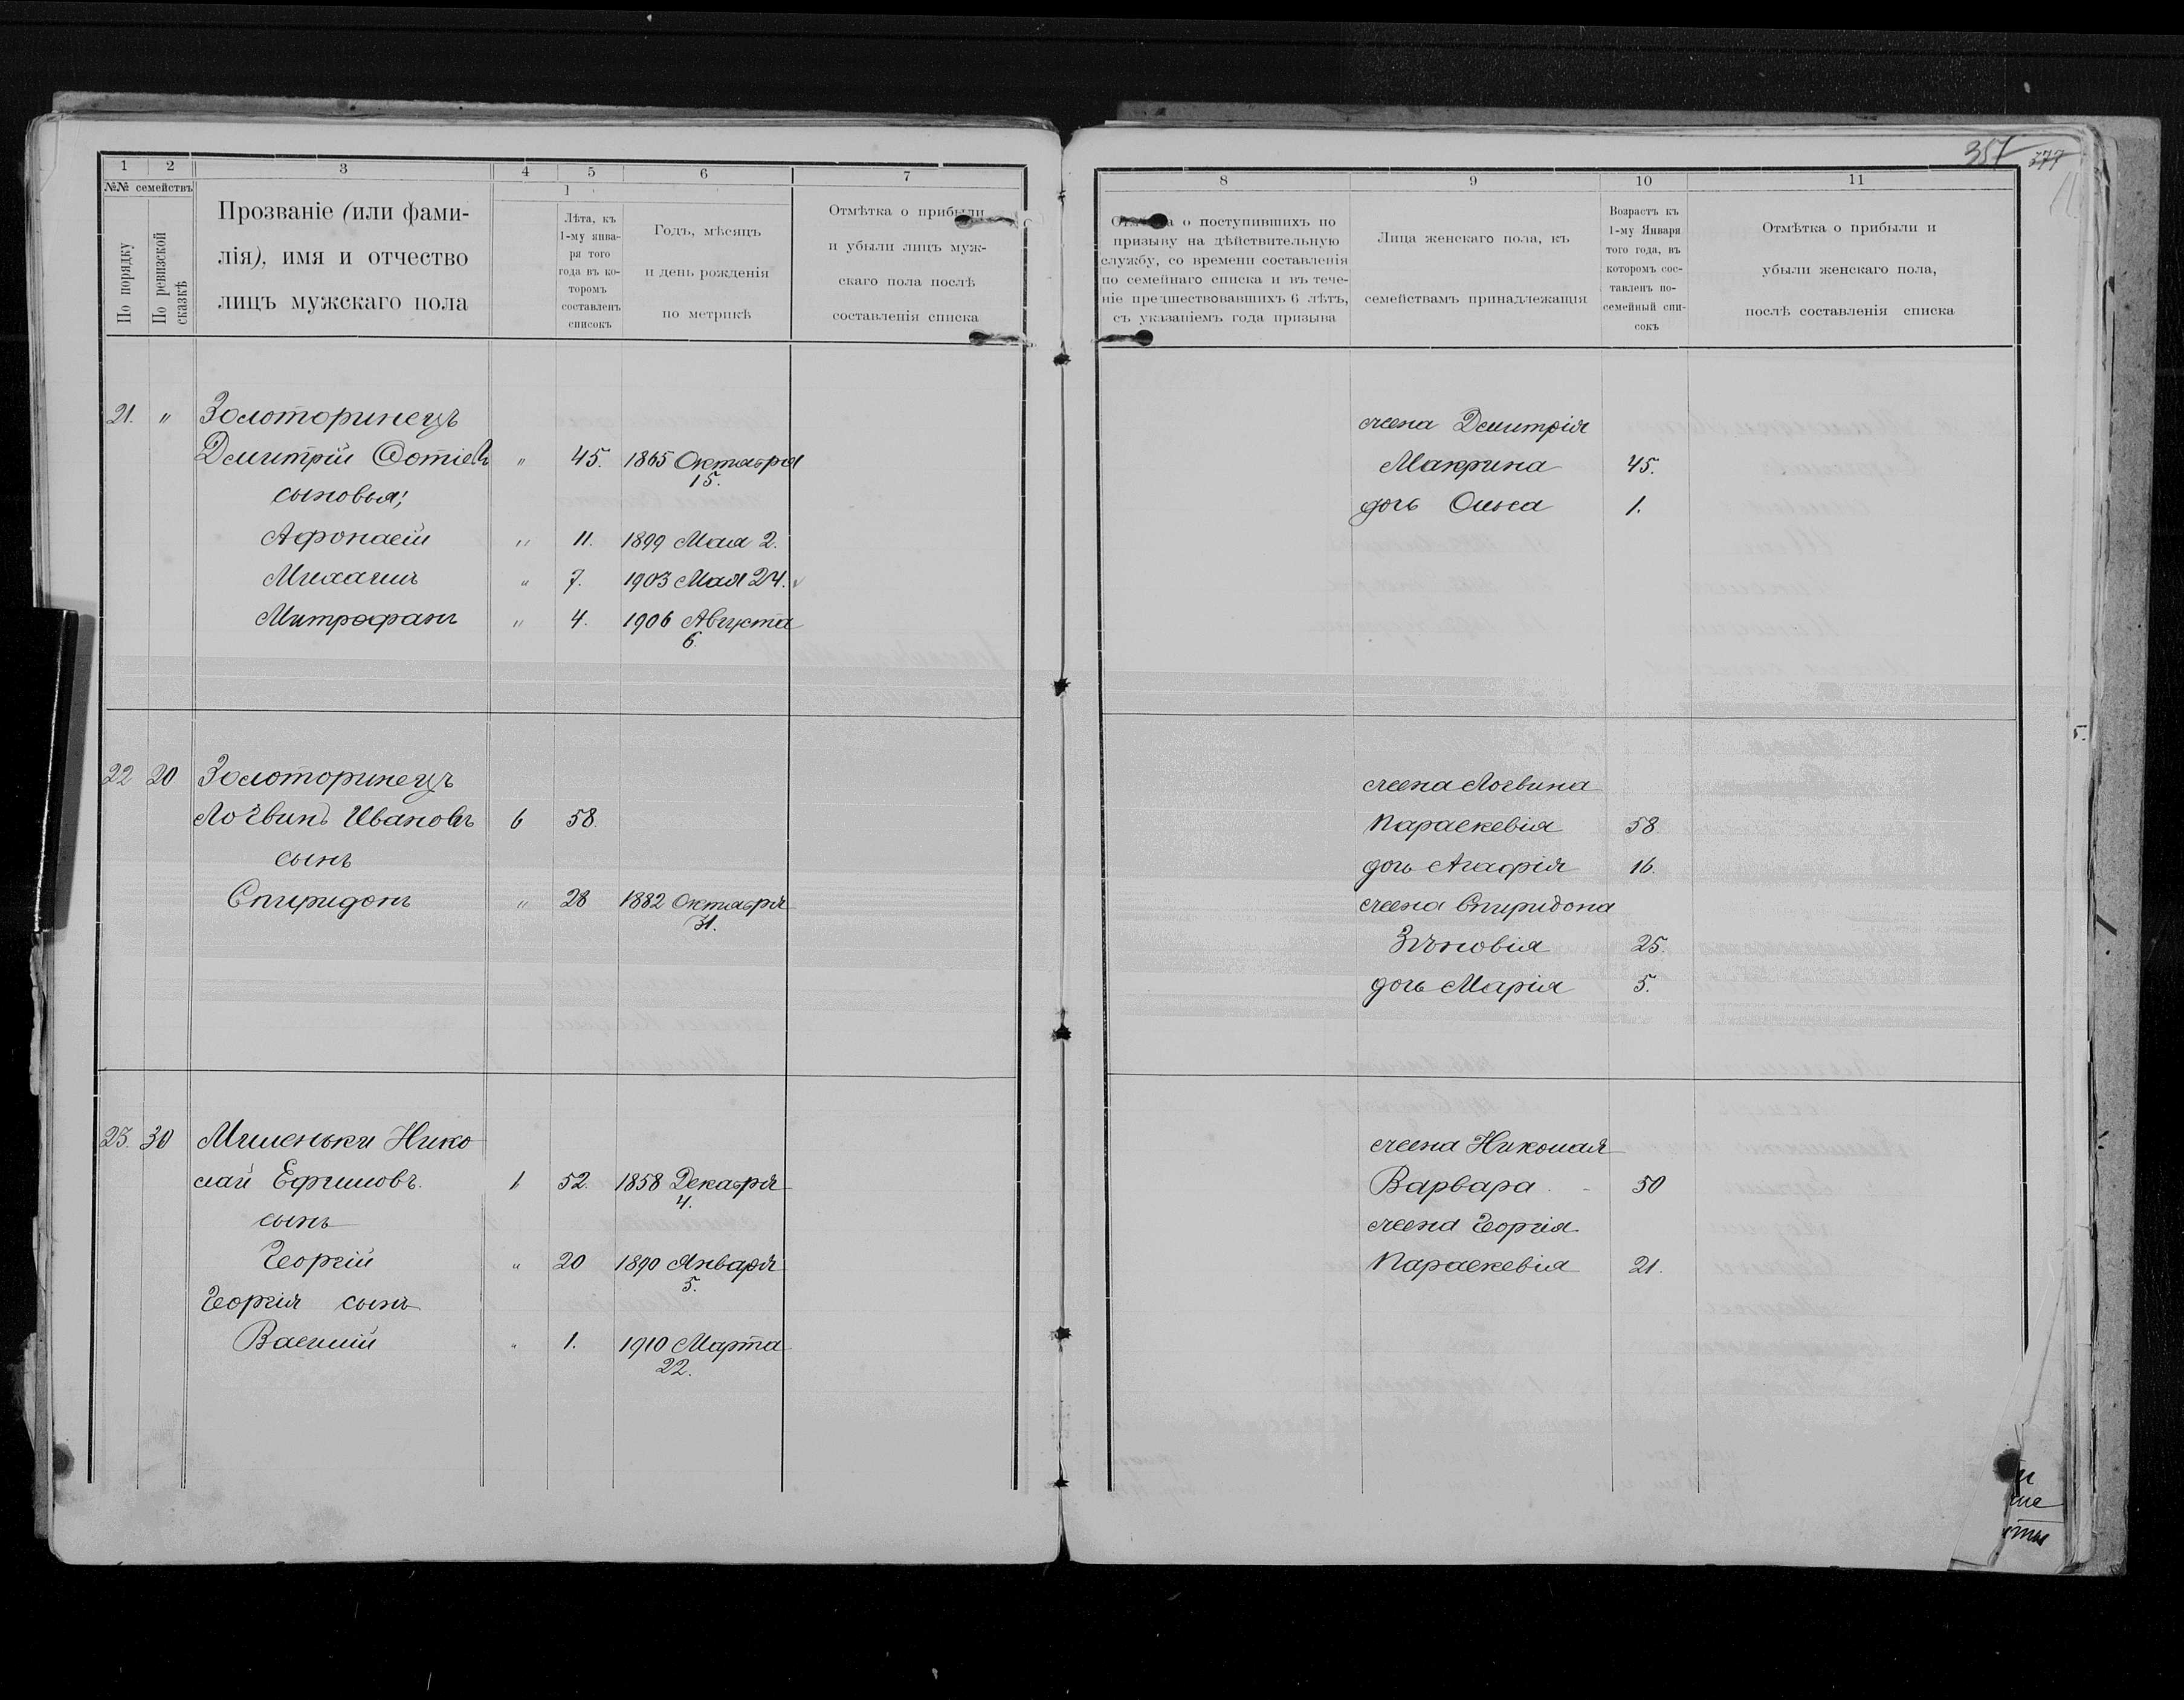 1 2 3 4 5 6 7
№№ семействъ
По порядку
По ревизской сказкѣ
Прозваніе (или фами-
лія), имя и отчество
лицъ мужскаго пола
1
Лѣта, къ
1-му янва-
ря того
года въ ко-
торомъ
составленъ
списокъ
Годъ, мѣсяцъ
и день рожденія
по метрикѣ
Отмѣтка о прибыли
и убыли лицъ муж-
скаго пола послѣ
составленія списка
21. " Золоторинецъ
Дмитрій Фотіевъ " 45. 1865 Октября
15.
сыновья;
Афонасій " 11. 1899 Мая 2.
Михаилъ " 7. 1903 Мая 24.
Митрофанъ " 4. 1906 Августа
6.
22 20 Золоторинецъ
Логвинъ Ивановъ 6 58.
сынъ
Спиридонъ " 28 1882 Октября
31.
23. 30 Мишеньки Нико
лай Ефимовъ. 1 52. 1858 Декабря
4.
сынъ
Георгій " 20 1890 Января
5.
Георгія сынъ
Василій " 1. 1910 Марта
22.
357 377
8 9 10 11
Отмѣтка о поступившихъ по
призыву на дѣйствительную
службу, со времени составленія
по семейнаго списка и въ тече-
ніе предшествовавшихъ 6 лѣтъ,
съ указаніемъ года призыва
Лица женскаго пола, къ
семействамъ принадлежащія
Возрастъ къ
1-му Января
того года, въ
которомъ сос-
тавленъ по-
семейный спи-
сокъ
Отмѣтка о прибыли и
убыли женскаго пола,
послѣ составленія списка
жена Дмитрія
Макрина 45.
дочь Ольга 1.
жена Логвина
Параскевія 58
дочь Агафія 16.
жена Спиридона
Зѣновія 25.
дочь Марія 5.
жена Николая
Варвара 50
жена Георгія
Параскевія 21.